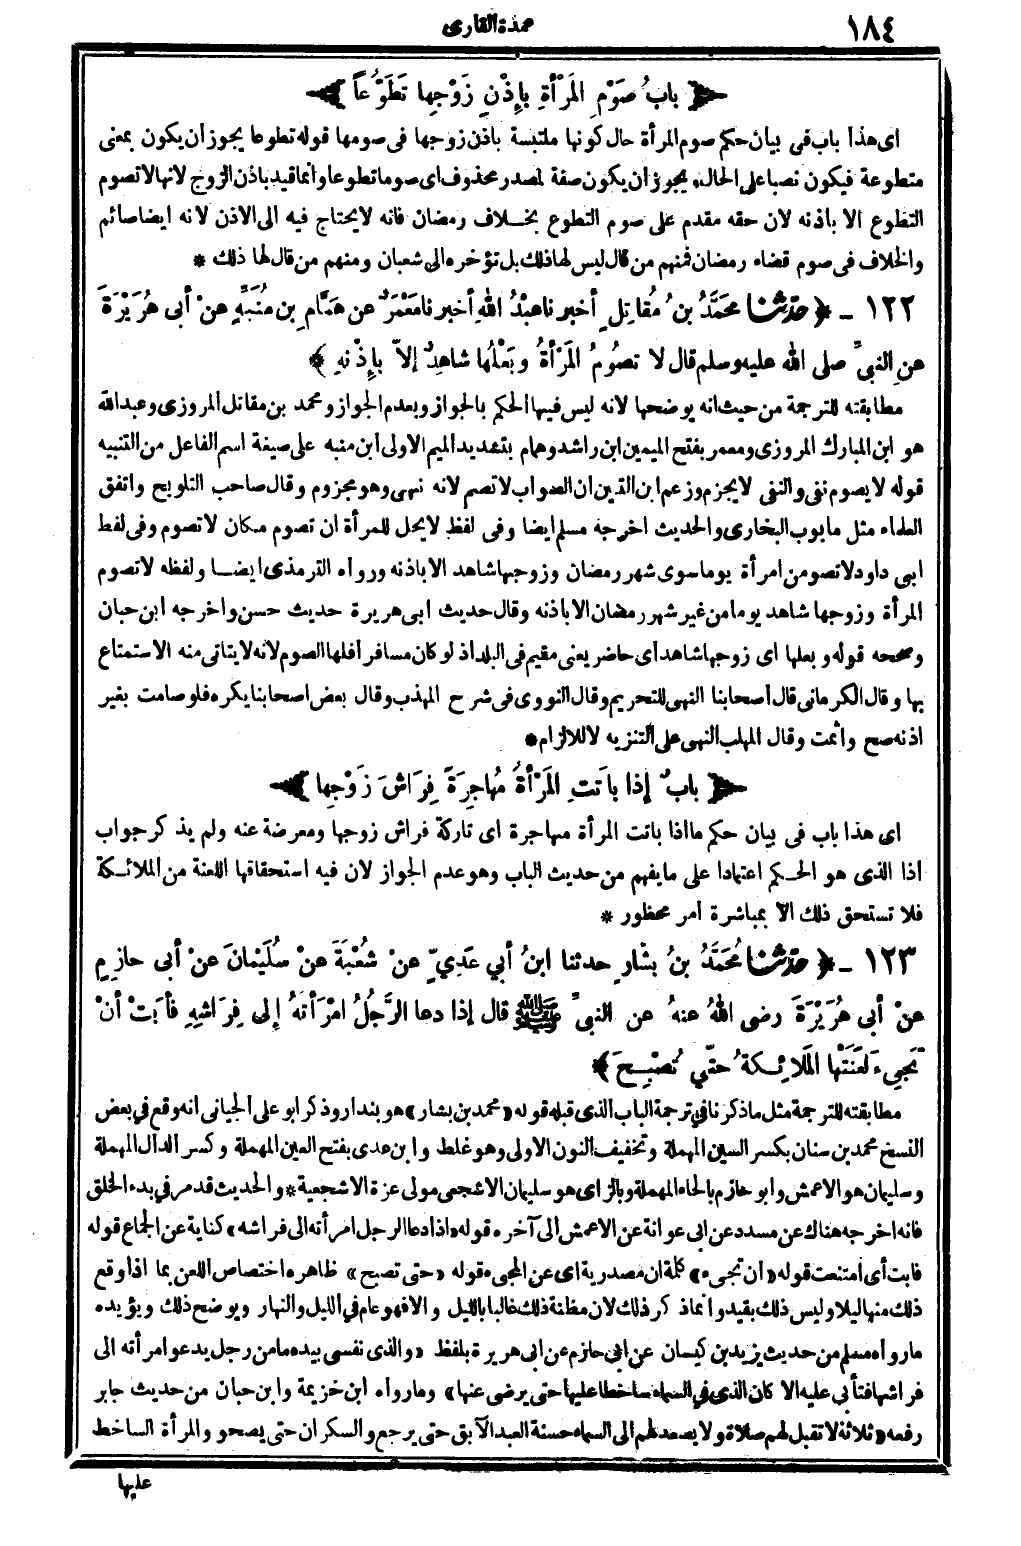 ١٨٤
عمدة القارى
﴿ بابُ صَوْمِ المَرْأةِ بِإذْنِ زَوْجِها تَطَوُّعاً ﴾
اى هذا باب فى بيان حكم صوم المرأة حال كونها ملتبسة باذن زوجها فى صومها قوله تطوعا يجوز أن يكون بمعنى
متطوعة فيكون نصبا على الحال ويجوز أن يكون صفة لمصدر محذوف اى صوما تطوعا وانما قيد باذن الزوج لانها لا تصوم
التطوع الا باذنه لان حقه مقدم على صوم التطوع بخلاف رمضان فانه لا يحتاج فيه الى الاذن لانه ايضا صائم
والخلاف فى صوم قضاء رمضان فمنهم من قال ليس لها ذلك بل تؤخره الى شعبان ومنهم من قال لها ذلك *
١٢٢ ـ ﴿ حدّثنا محَمَّدُ بنُ مُقاتِلٍ أخبرنا عبْدُ اللهِ أخبرنا مَعْمَرٌ عن همَّامِ بنِ مُنَبِّهٍ عنْ أبى هُرَيْرَةَ
عنِ النبىِّ صلى الله عليه وسلم قال لا تصُومُ المَرْأةُ وبَعْلُها شاهِدٌ إلاّ بإذْنهِ ﴾
مطابقته للترجمة من حيث انه يوضحها لانه ليس فيها الحكم بالجواز وبعدم الجواز ومحمد بن مقاتل المروزى وعبد الله
هو ابن المبارك المروزى ومعمر بفتح الميمين ابن راشد وهمام بتشديد الميم الاولى ابن منبه على صيغة اسم الفاعل من التنبيه
قوله لا يصوم نفى والنفى لا يجزم وزعم ابن الدين ان الصواب لا تصم لانه نهى وهو مجزوم وقال صاحب التلويح واتفق
العلماء مثل ما بوب البخارى والحديث اخرجه مسلم ايضا وفى لفظ لا يحل للمرأة ان تصوم مكان لا تصوم وفى لفظ
ابى داود لا تصومن امرأة يوما سوى شهر رمضان وزوجها شاهد الا باذنه ورواه الترمذى ايضا ولفظه لا تصوم
المرأة وزوجها شاهد يوما من غير شهر رمضان الا باذنه وقال حديث ابى هريرة حديث حسن واخرجه ابن حبان
وصححه قوله وبعلها اى زوجها شاهد أى حاضر يعنى مقيم فى البلد اذ لو كان مسافرا فلها الصوم لانه لا يتاتى منه الاستمتاع
بها وقال الكرمانى قال أصحابنا النهى للتحريم وقال النووى فى شرح المهذب وقال بعض اصحابنا يكره فلو صامت بغير
اذنه صح واثمت وقال المهلب النهى على التنزيه لا للالزام *
﴿ بابٌ إذا باتَتِ المَرْأةُ مُهاجِرَةً فِرَاشَ زَوْجِها ﴾
اى هذا باب فى بيان حكم ما اذا باتت المرأة مهاجرة اى تاركة فراش زوجها ومعرضة عنه ولم يذكر جواب
اذا الذى هو الحكم اعتمادا على ما يفهم من حديث الباب وهو عدم الجواز لان فيه استحقاقها اللعنة من الملائكة
فلا تستحق ذلك الا بمباشرة امر محظور *
١٢٣ ـ ﴿ حدّثنا مُحَمَّدُ بنُ بشَّارٍ حدثنا ابنُ أبي عَدِيٍّ عنْ شُعْبَةَ عنْ سُلَيْمانَ عنْ أبى حازِمٍ
عنْ أبى هُرَيْرَةَ رضى اللهُ عنهُ عن النبىِّ ﷺ قال إذا دعا الرَّجُلُ امْرَأتَهُ إلى فِرَاشِهِ فأبَتْ أنْ
تَجِىءَ لَعَنَتْها المَلائِكةُ حتَّى تُصْبِحَ ﴾
مطابقته للترجمة مثل ما ذكرنا فى ترجمة الباب الذى قبله قوله «محمد بن بشار» هو بندار وذكر ابو على الجيانى انه وقع فى بعض
النسخ محمد بن سنان بكسر السين المهملة وتخفيف النون الاولى وهو غلط وابن عدى بفتح العين المهملة وكسر الدال المهملة
وسليمان هو الاعمش وابو حازم بالحاء المهملة وبالزاى هو سليمان الاشجعى مولى عزة الاشجعية * والحديث قد مر فى بدء الخلق
فانه اخرجه هناك عن مسدد عن ابى عوانة عن الاعمش الى آخره قوله «اذا دعا الرجل امرأته الى فراشه» كناية عن الجماع قوله
فابت أى امتنعت قوله «ان تجىء» كلمة ان مصدرية اى عن المجىء قوله «حتى تصبح» ظاهره اختصاص اللعن بما اذا وقع
ذلك منها ليلا وليس ذلك بقيد وانما ذكر ذلك لان مظنة ذلك غالبا بالليل والا فهو عام فى الليل والنهار ويوضح ذلك ويؤيده
ما رواه مسلم من حديث يزيد بن كيسان عن ابى حازم عن ابى هريرة بلفظ «والذى نفسى بيده ما من رجل يدعو امرأته الى
فراشها فتأبى عليه الا كان الذى فى السماء ساخطا عليها حتى يرضى عنها» وما رواه ابن خزيمة وابن حبان من حديث جابر
رفعه «ثلاثة لا تقبل لهم صلاة ولا يصعد لهم الى السماء حسنة العبد الآبق حتى يرجع والسكران حتى يصحو والمرأة الساخط
عليها